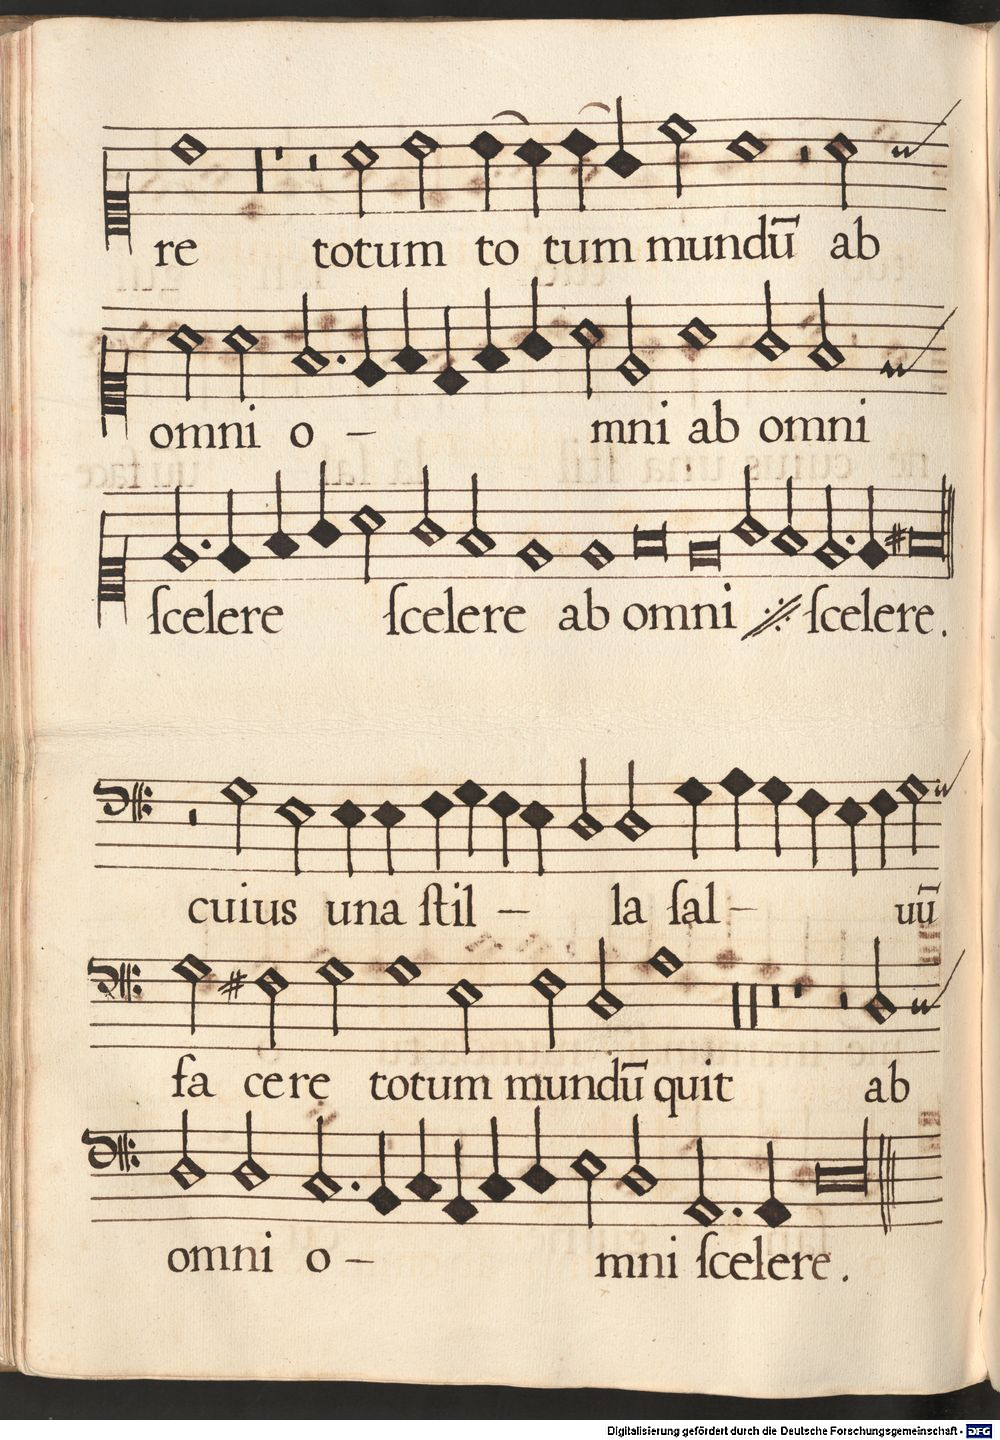 re totum to tum mundū ab
omni o — mni ab omni
ſcelere ſcelere ab omni ſcelere.
cuius una ſtil — la ſal — uū
fa cere totum mundū quit ab
omni o — mni ſcelere.
Digitalisierung gefördert durch die Deutsche Forschungsgemeinschaft - DFG